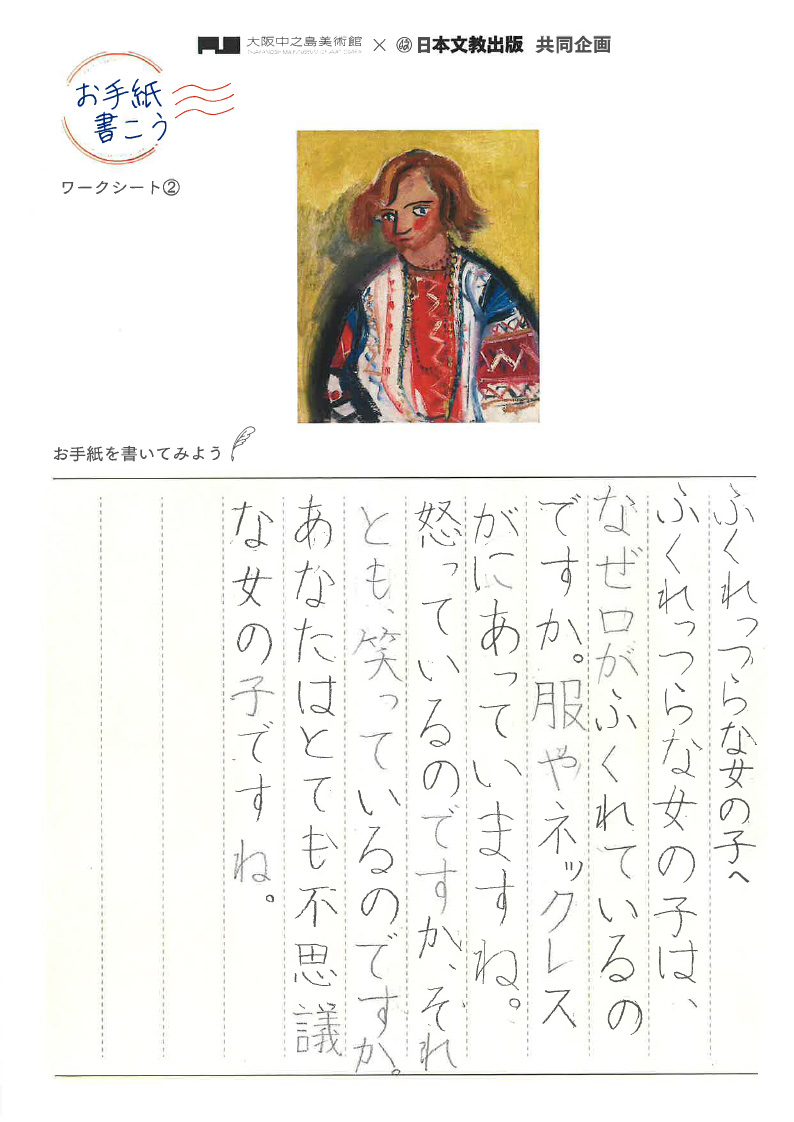 大阪中之島美術館 × 日本文教出版 共同企画
お手紙
書こう
ワークシート②
お手紙を書いてみよう
ふくれっつらな女の子へ
ふくれっつらな女の子は、
なぜ口がふくれているの
ですか。服やネックレス
がにあっていますね。
怒っているのですか、ぞれ
とも、笑っているのですか。
あなたはとても不思議
な女の子ですね。